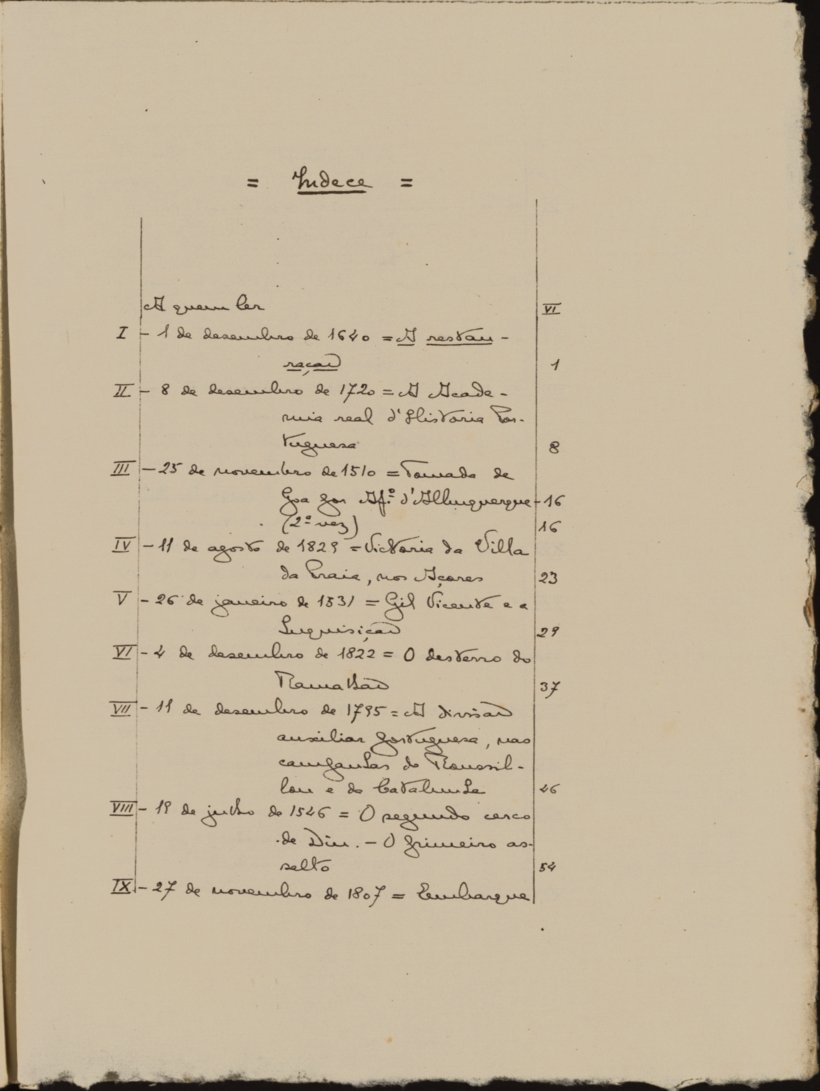 = Indece =
A quem ler VI
I - 1 de desembro de 1640 = A restau-
ração 1
II - 8 de desembro de 1720 = A Acade-
mia real d'Historia Por-
tuguesa 8
III - 25 de novembro de 1510 = Tomada de
Goa por Af.º d'Albuquerque - 16
(2ª vez) 16
IV - 11 de agosto de 1829 = Victoria da Villa
da Praia, nos Açores 23
V - 26 de janeiro de 1531 = Gil Vicente e a
Inquisição 29
VI - 4 de desembro de 1822 = O desterro do
Ramalhão 37
VII - 11 de desembro de 1795 = A divisão
auxiliar portuguesa, nas
campanhas do Roussil-
lon e da Catalunha 46
VIII - 19 de julho de 1546 = O segundo cerco
de Diu. - O primeiro as-
salto 54
IX - 27 de novembro de 1807 = Embarque